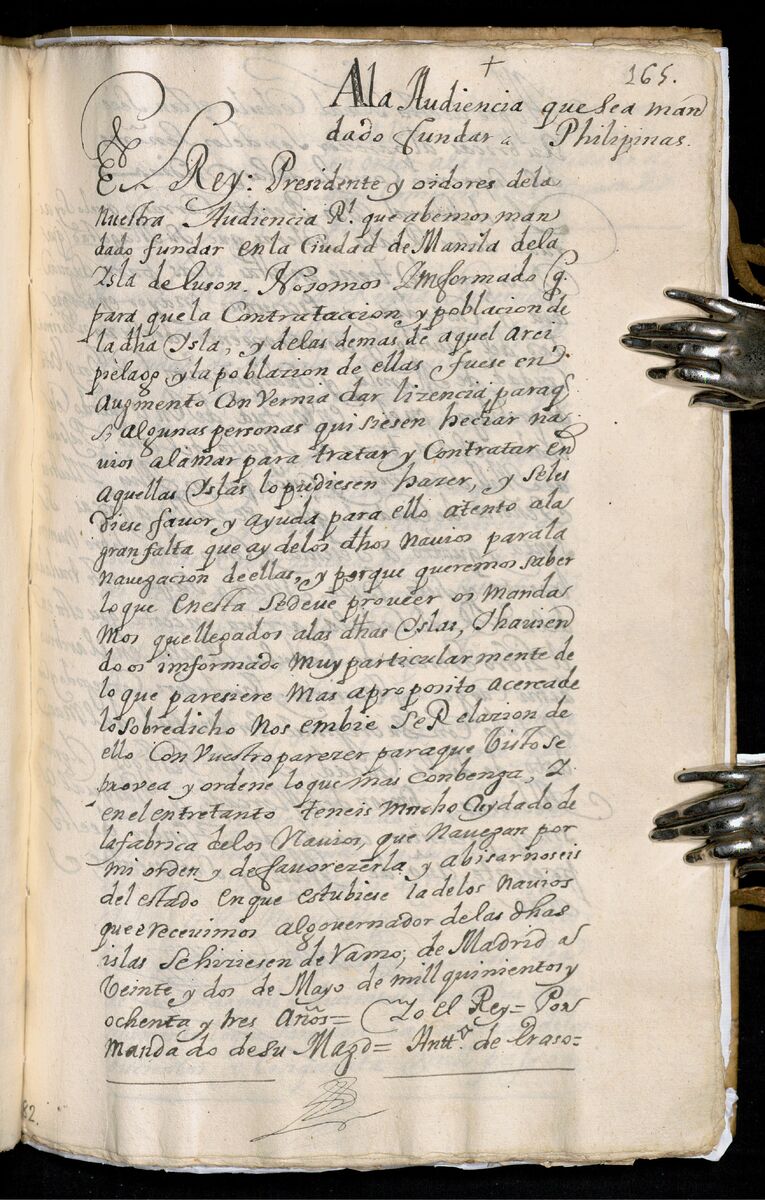 165.
A la Audiencia que sea man
dado fundar a Philipinas.
El Rey: Presidente y oidores dela
nuestra Audiencia Rl. que abemos man
dado fundar en la Ciudad de Manila dela
Ysla de luson. Nosomos Imformado q.
para que la Contrataccion y poblacion de
la dha Ysla, y delas demas de aquel Arci
pielago y la poblazion de ellas fuese en
Augmento Convernia dar lizencia paraq
si algunas personas quisiesen hechar na
vios alamar para tratar y Contratar en
aquellas Yslas lo pudiesen hazer, y seles
diese favor y ayuda para ello atento ala
gran falta que ay delos dhos navios parala
navegacion de ellas, y porque queremos saber
lo que en esta sedeve proveer os manda
mos que llegados alas dhas Yslas, Yhavien
do os imformado muy particularmente de
lo que paresiere mas aproposito acercade
lo sobredicho nos embieis Relazion de
ello con vuestro parezer paraque visto se
provea y ordene lo que mas conbenga, Y
en el entretanto teneis mucho Cuydado de
la fabrica delos Navios, que navegan por
mi orden y de favorezerla y abisarnoseis
del estado en que estubiese la delos navios
que ecrecevimos al governador de las dhas
islas se hiziesen de Vamo; de Madrid a
Veinte y dos de Mayo de mill quinientos y
ochenta y tres Años= Yo el Rey= Por
mandado de su Magd= Antt.º de Eraso=
82.